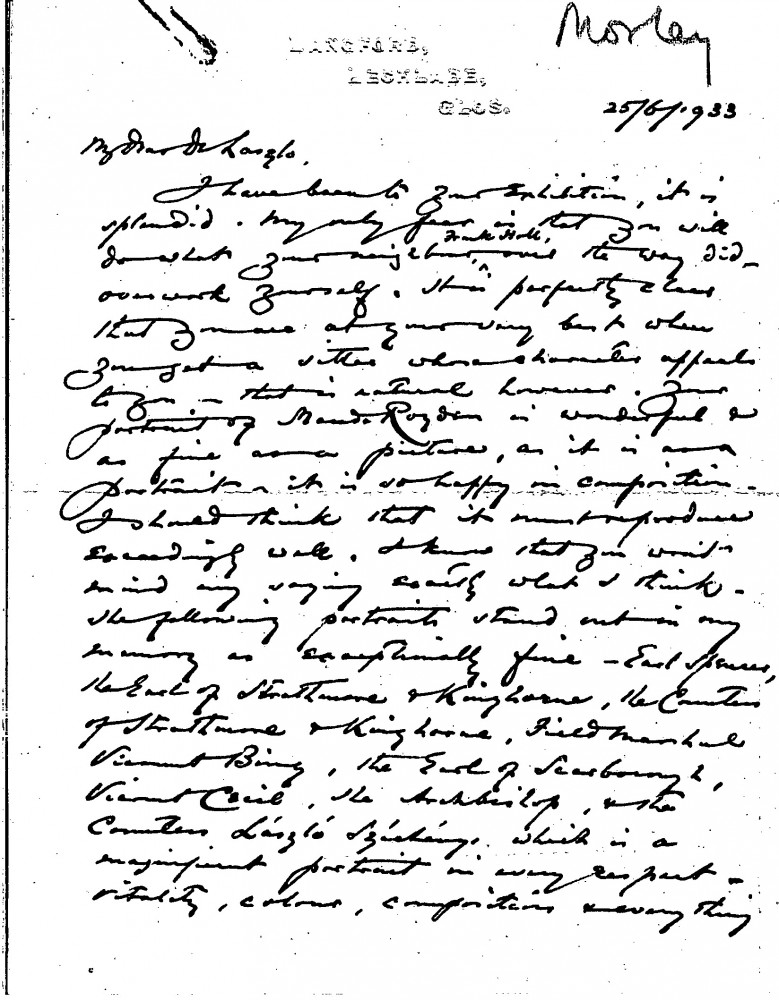 Morley
LANGFORD,
LECHLADE,
GLOS.
25/6/1933
My dear De Laszlo,
I have been to your Exhibition, it is
splendid. My only fear is that you will
do what your neighbour, Frank Holl, over the way did –
overwork yourself. It is perfectly clear
that you are at your very best when
you get a sitter whose character appeals
to you – that is natural however. Your
portrait of Maude Royden is wonderful &
as fine as a picture, as it is as a
portrait – it is so happy in composition –
I should think that it must reproduce
exceedingly well. I know that you won't
mind my saying exactly what I think –
The following portraits stand out in my
memory as exceptionally fine – Earl Spencer,
the Earl of Strathmore & Kinghorne, the Countess
of Strathmore & Kinghorne, Field Marshal
Viscount Bing, the Earl of Scarborough,
Viscount Cecil, the Archbishop, & the
Countess László Széchényi which is a
magnificent portrait in every respect –
vitality, colour, composition & everything